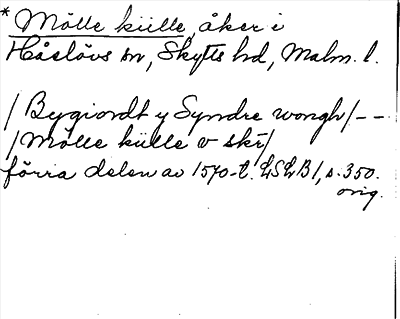 * Mölle külle, åker i
Håslövs sn, Skytts hd, Malm. l.
/ Bygiordt y Syndre wongh / - -
/ Mölle külle v skr /
förra delen av 1570-t. LSLB 1, s. 350.
orig.